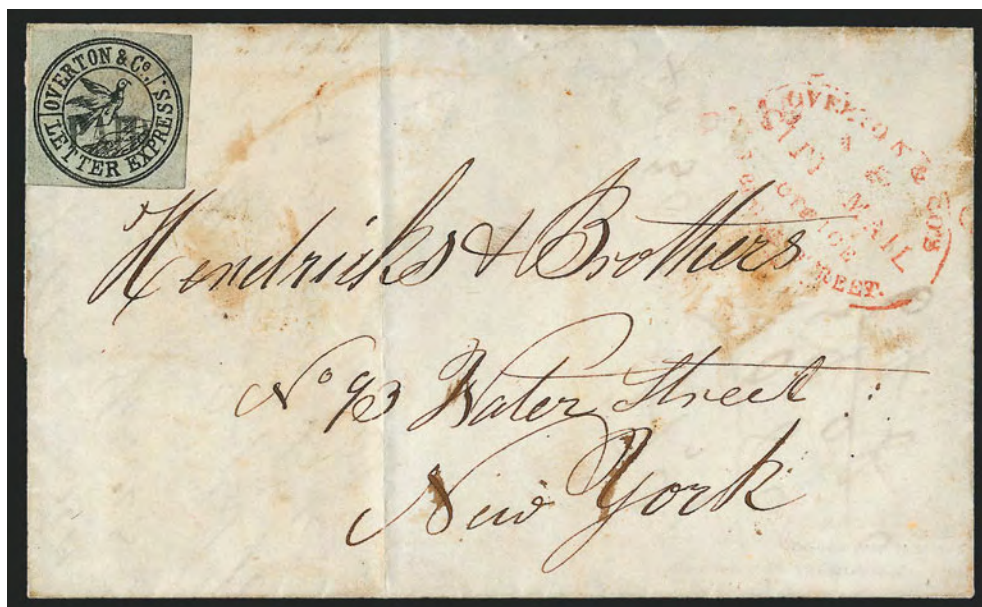 OVERTON & Co.
LETTER EXPRESS.
OVERTON & Co's
MAIL
OFFICE
STREET.
Hendricks & Brothers
No 93 Water Street
New York